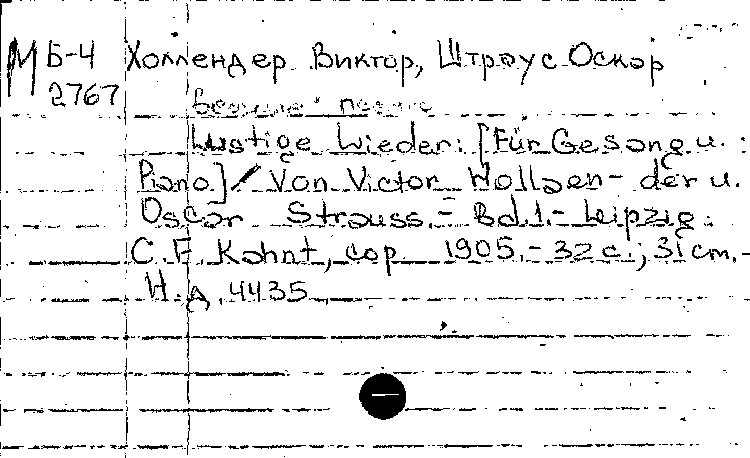 М Б-4 Холлендер Виктор, Штраус Оскар
2767
Веселые песни
Lustige Lieder: [Für Gesang u.
Piano] / Von Victor Hollaen- der u.
Oscar Strauss.- Bd.1.- Leipzig:
C.F. Kahnt, cop 1905.- 32 c.; 31 cm.-
Н.д. 4435